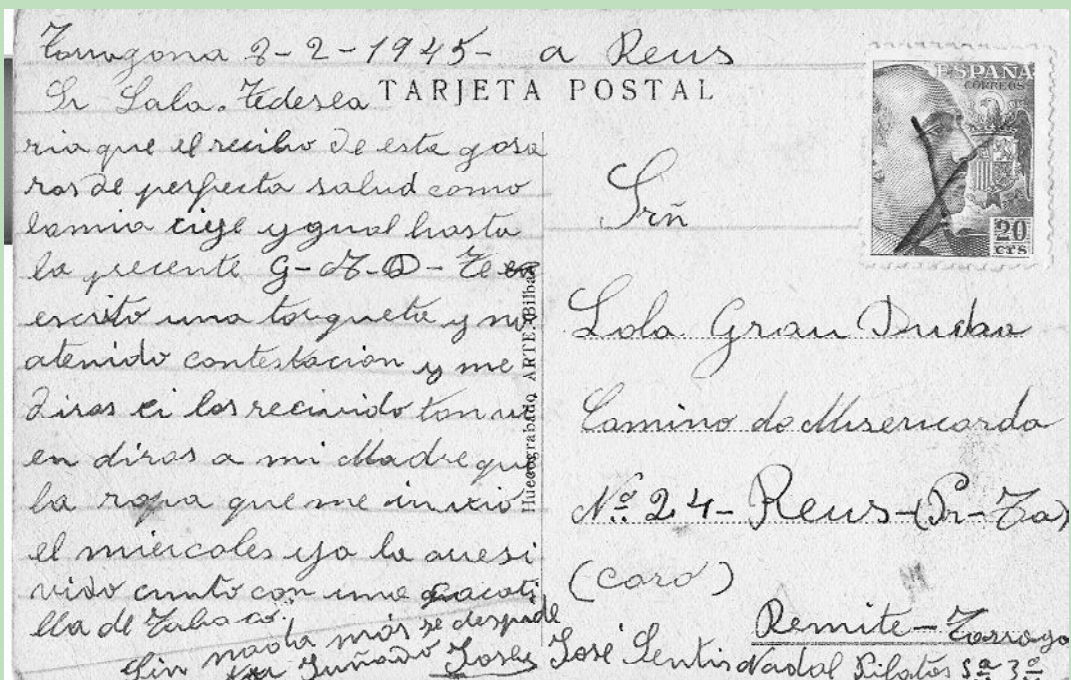 Tarragona 2-2-1945- a Reus
TARJETA POSTAL
Sr Lola. Tedesea
ria que el recibo de esta gosa
ras de perfecta salud como
lamia eige y gual hasta
la precente G-A-D- Te e
escrito una targueta y no
atenido contestacion y me
diras ci las recivido tanvi
en diras a mi Madre que
la ropa que me invio
el miercoles yo la aresi
vido cunto con una
lla de Tabaco.
Sin nada más se despide
tu Cuñado José
Huecograbado ARTE. Bilbao
ESPAÑA
CORREOS
20
CTS
Srñ
Lola Grau Dudaa
Camino do Misericorda
Nº 24- Reus-(Pr-Ta)
(caro)
Remite-Tarrago
José Sentis Nadal Pilatos 5ª 3ª